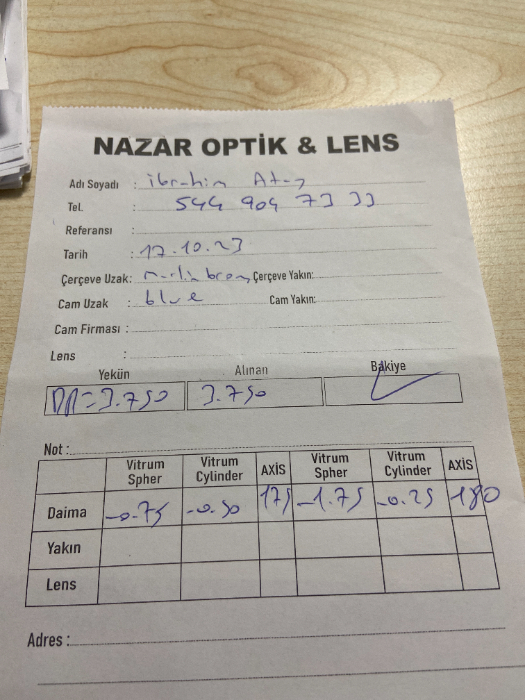 NAZAR OPTİK & LENS
Adı Soyadı : ibrahim
Tel. : 544 904 73 33
Referansı :
Tarih : 17.10.23
Çerçeve Uzak: Çerçeve Yakın:
Cam Uzak : blue Cam Yakın:
Cam Firması :
Lens :
Yekün Alınan Bakiye
=3.750 3.750
Not :
Vitrum Spher Vitrum Cylinder AXİS Vitrum Spher Vitrum Cylinder AXİS
Daima -0.75 -0.50 175 -1.75 -0.25 180
Yakın
Lens
Adres :